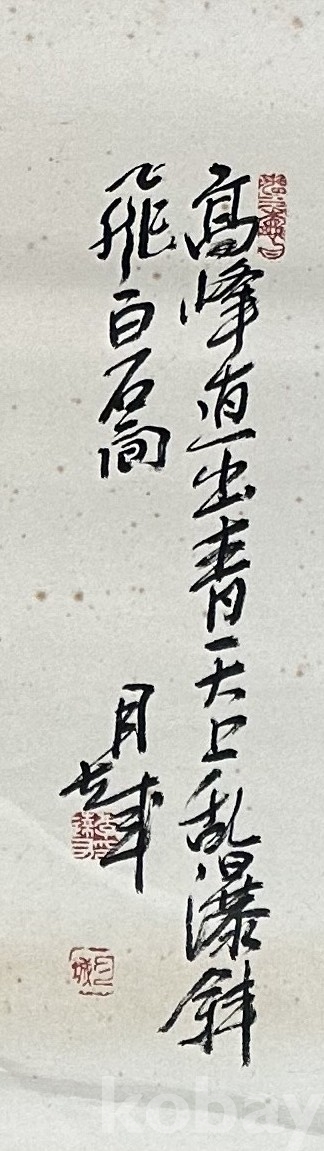 高峰直出青天上乱瀑斜
飛白石間
月城
kobay